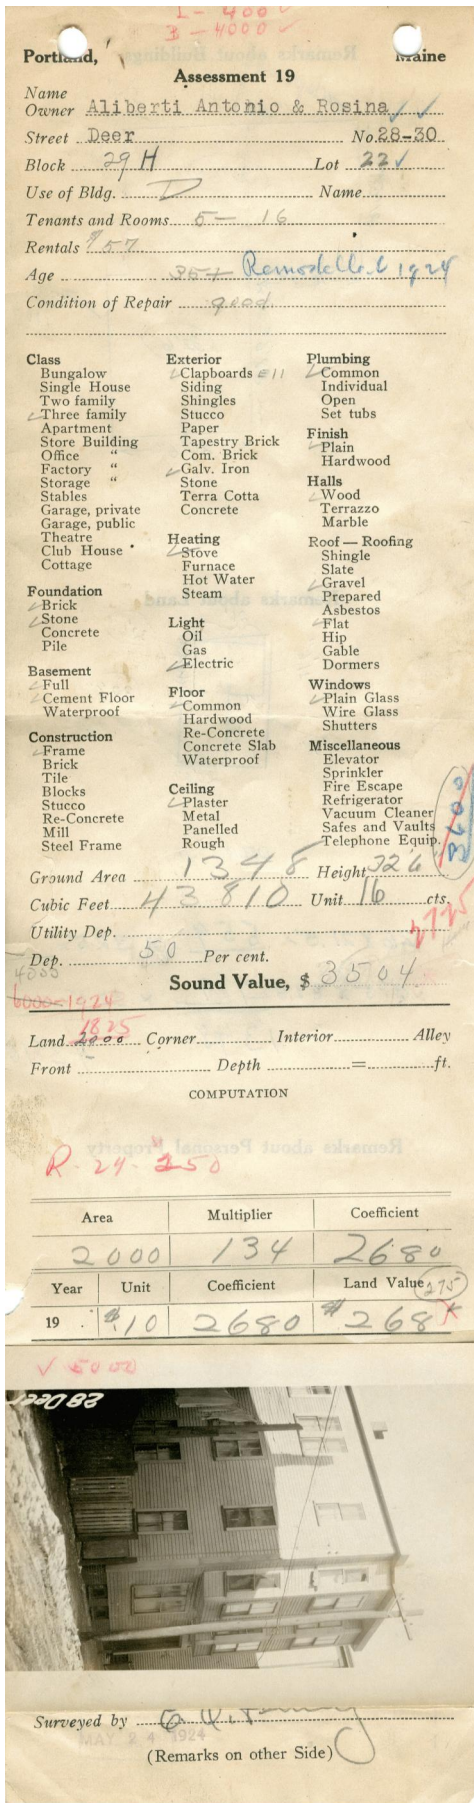 L - 400 ✓
B - 4000 ✓
Portland, Maine
Assessment 19
Name
Owner Aliberti Antonio & Rosina ✓ ✓
Street Deer No. 28-30
Block 29 H Lot 22 ✓
Use of Bldg. D Name
Tenants and Rooms 5 — 16
Rentals $57
Age 35+ Remodelled 1924
Condition of Repair good
Class
Bungalow
Single House
Two family
✓ Three family
Apartment
Store Building
Office "
Factory "
Storage "
Stables
Garage, private
Garage, public
Theatre
Club House
Cottage
Foundation
✓ Brick
✓ Stone
Concrete
Pile
Basement
✓ Full
✓ Cement Floor
Waterproof
Construction
✓ Frame
Brick
Tile
Blocks
Stucco
Re-Concrete
Mill
Steel Frame
Exterior
✓ Clapboards Ell
Siding
Shingles
Stucco
Paper
Tapestry Brick
Com. Brick
✓ Galv. Iron
Stone
Terra Cotta
Concrete
Heating
✓ Stove
Furnace
Hot Water
Steam
Light
Oil
Gas
✓ Electric
Floor
✓ Common
Hardwood
Re-Concrete
Concrete Slab
Waterproof
Ceiling
✓ Plaster
Metal
Panelled
Rough
Plumbing
✓ Common
Individual
Open
Set tubs
Finish
✓ Plain
Hardwood
Halls
✓ Wood
Terrazzo
Marble
Roof — Roofing
Shingle
Slate
✓ Gravel
Prepared
Asbestos
✓ Flat
Hip
Gable
Dormers
Windows
✓ Plain Glass
Wire Glass
Shutters
Miscellaneous
Elevator
Sprinkler
Fire Escape
Refrigerator
Vacuum Cleaner
Safes and Vaults
Telephone Equip.
3600
Ground Area 1348 Height 32 6
Cubic Feet 43 810 Unit 16 cts.
2725
Utility Dep.
Dep. 50 Per cent.
Sound Value, $ 3504
6000-1924
1825
Land 2000 Corner Interior Alley
Front Depth = ft.
COMPUTATION
R-24-250
Area Multiplier Coefficient
2000 134 2680
Year Unit Coefficient Land Value 275
19 $.10 2680 $268
✓ 5000
28 Deer
Surveyed by
MAY 24 1924
(Remarks on other Side)